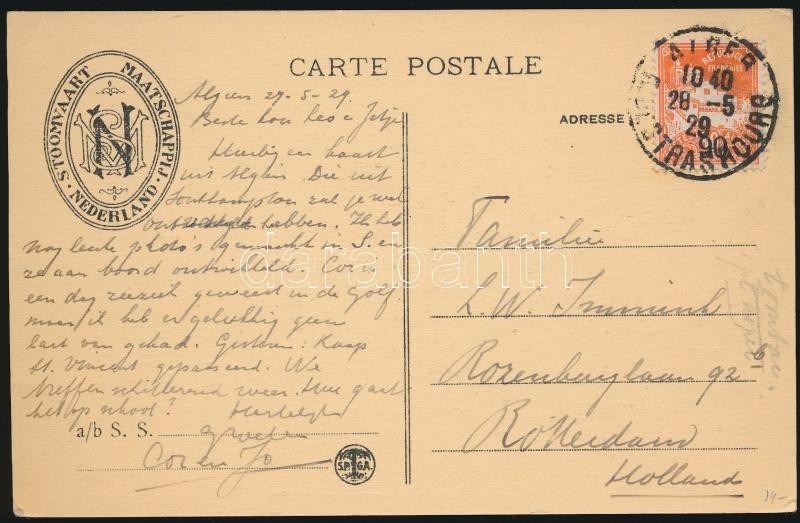 STOOMVAART MAATSCHAPPIJ
· NEDERLAND ·
SMN
CARTE POSTALE
ADRESSE
REPUBLIQUE
FRANCAISE
ALGER
10 40
28 -5
29
90
STRASBOURG
Algiers 27-5-29
Beste Leo en Jetje
Hierbij een kaart
uit Algiers. Die uit
Southampton zal je wel
ontvangen hebben. Ik heb
nog leuke photo's gemaakt in S. en
ze aan boord ontwikkeld. Cor is
een dag zeeziek geweest in de Golf.
maar ik heb er gelukkig geen
last van gehad. Gisteren Kaap
St. Vincent gepasseerd. We
treffen schitterend weer. Hoe gaat
het op school? Hartelijke
a/b S. S. groeten
Cor en Jo
S.P. GA.
Familie
L. W.
Rozenburglaan 92
Rotterdam
Holland
14-
darabanth